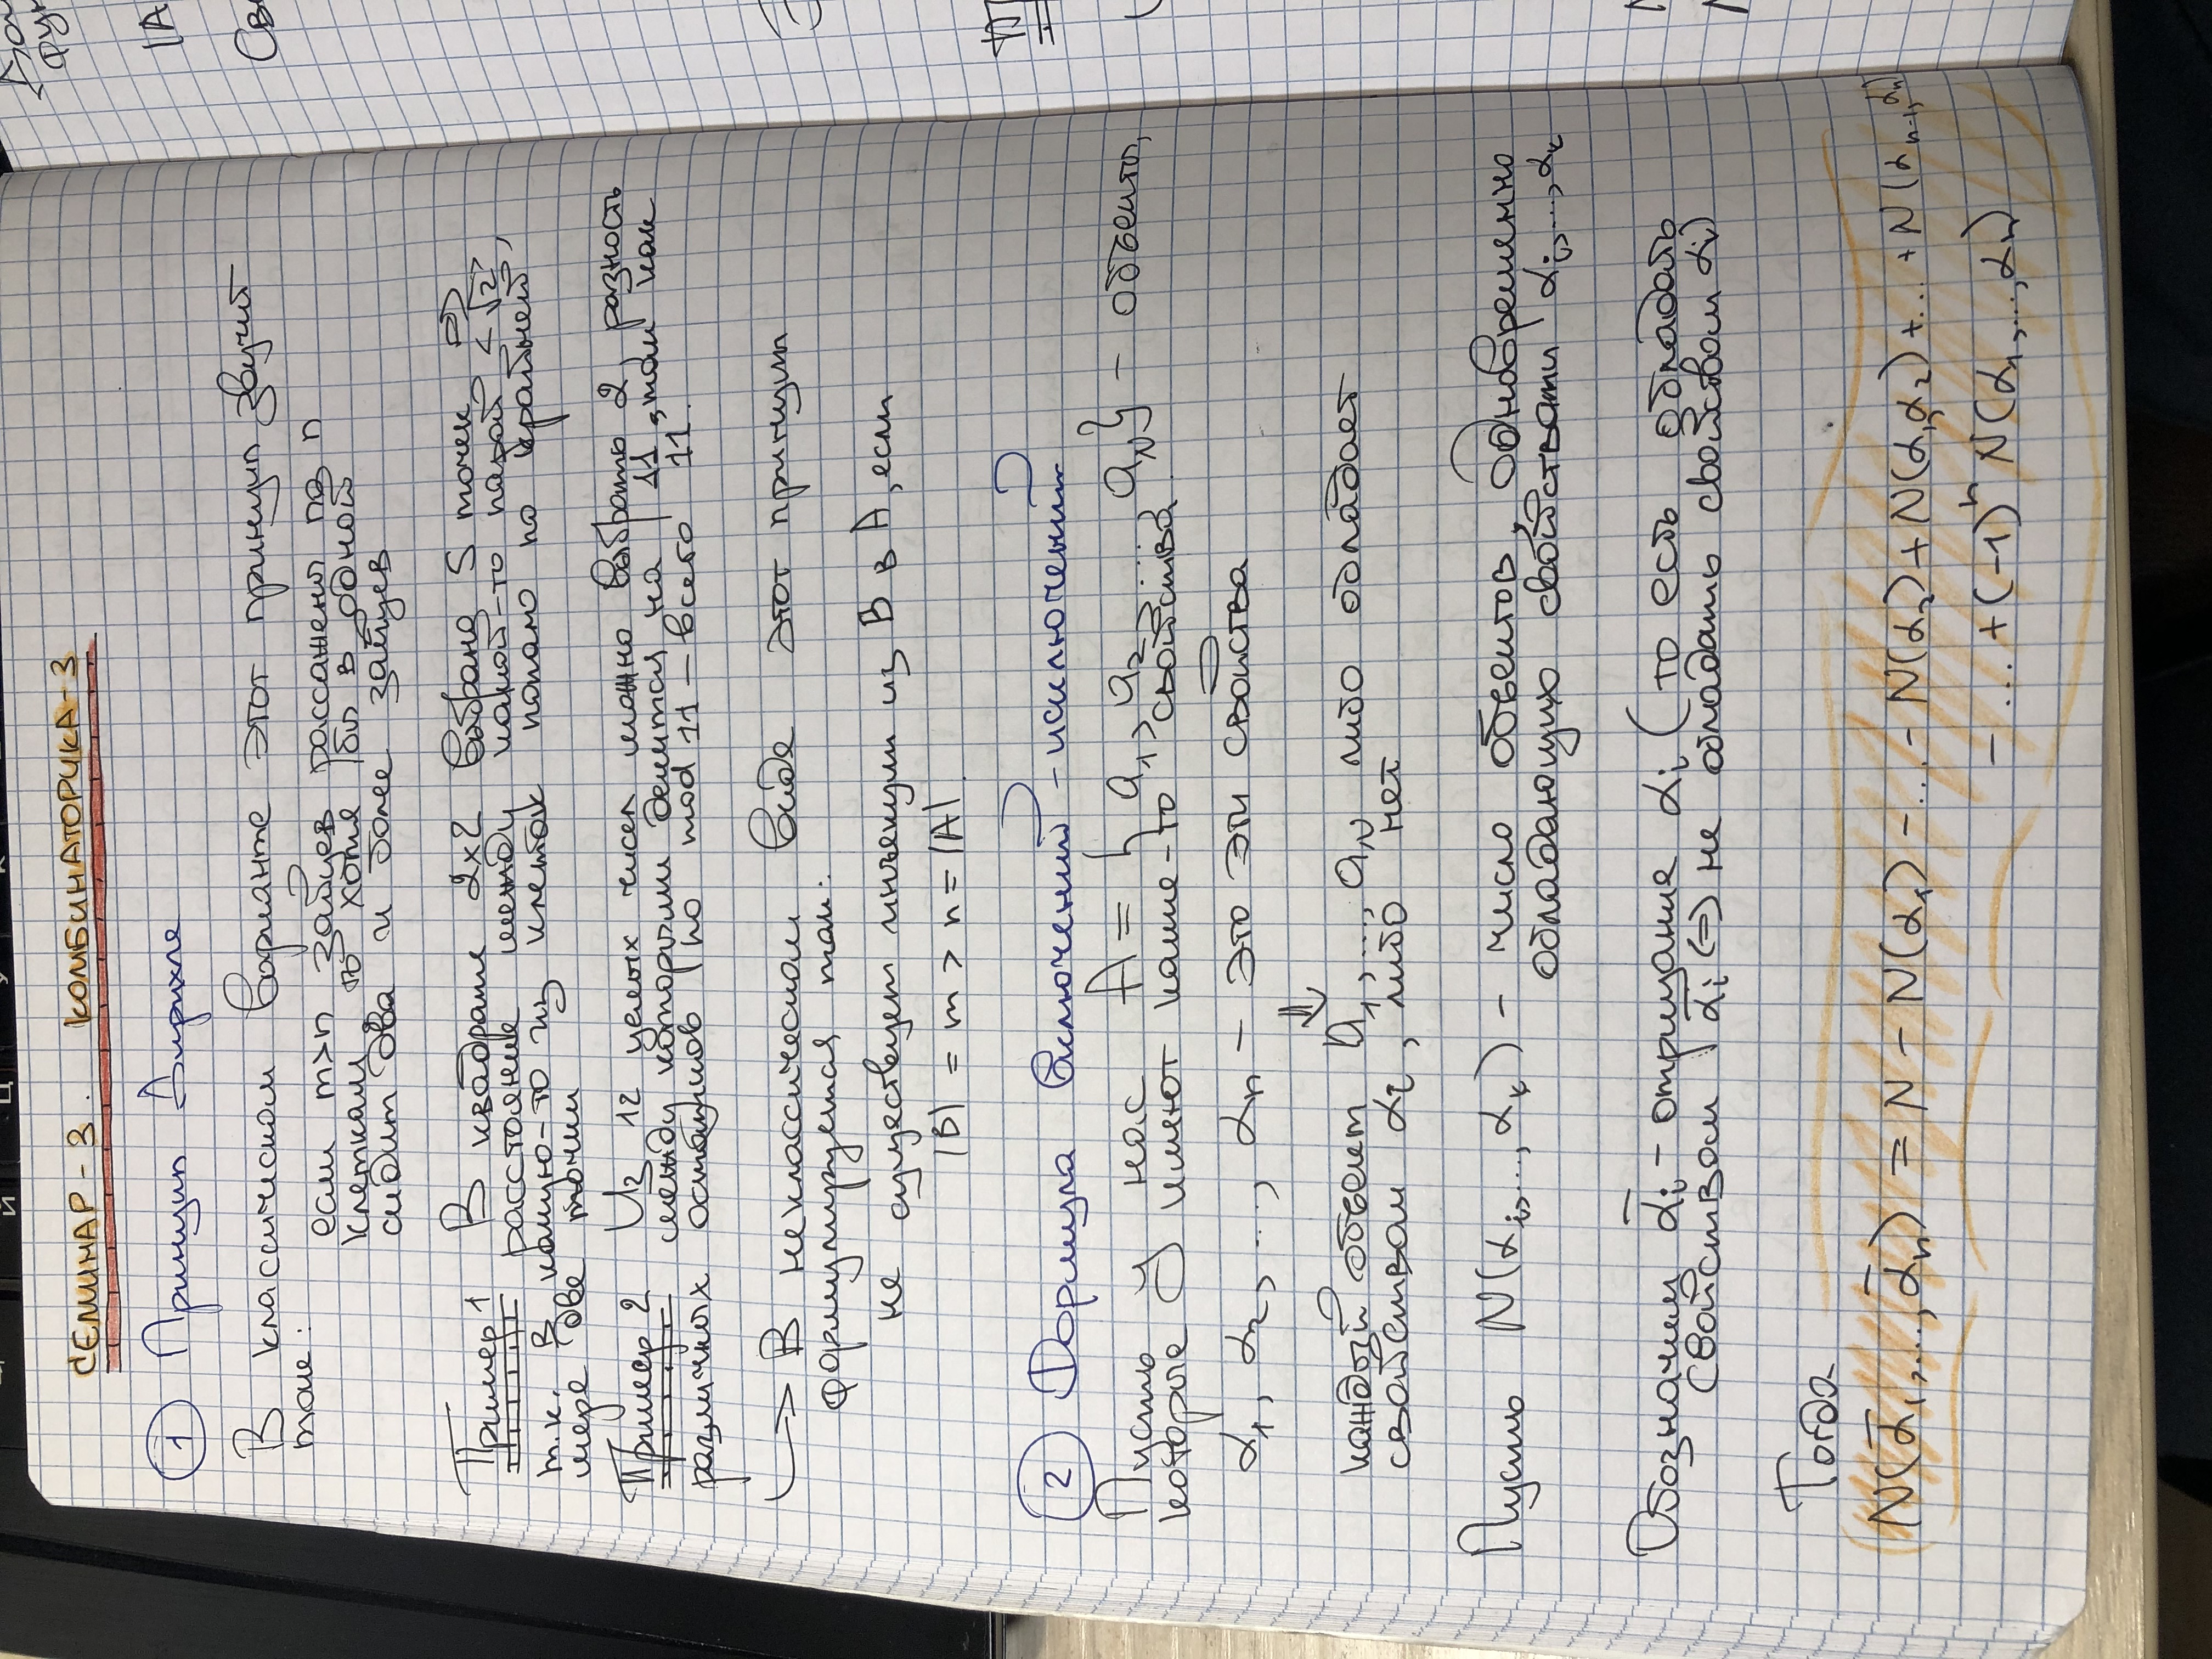 СЕМИНАР - 3. КОМБИНАТОРИКА - 3
1 Принцип Дирихле
В классическом варианте этот принцип звучит
так:
если m>n зайцев рассажены по n
клеткам, то хотя бы в одной
сидит два и более зайцев
Пример 1 В квадрате 2x2 выбрано 5 точек =>
расстояние между какой-то парой < √2,
т.к. в какую-то из клеток попало по крайней
мере две точки
Пример 2 Из 12 целых чисел можно выбрать 2, разность
между которыми делится на 11, так как
различных остатков по mod 11 – всего 11.
→ В неклассическом виде этот принцип
формулируется так:
не существует инъекции из B в A, если
|B| = m > n = |A|.
2 Формула включений - исключений
Пусть у нас A = { a₁, a₂, ..., a_N } – объекты,
которые имеют какие-то свойства.
α₁, α₂, ..., αₙ – это эти свойства
⇓
каждый объект a₁, ..., a_N либо обладает
свойством αᵢ, либо нет
Пусть N(αᵢ, ..., αₖ) – число объектов, одновременно
обладающих свойствами αᵢ, ..., αₖ
Обозначим ᾱᵢ – отрицание αᵢ (то есть обладать
свойством ᾱᵢ (=) не обладать свойством αᵢ)
Тогда
N(ᾱ₁, ..., ᾱₙ) = N – N(α₁) – ... – N(α₂) + N(α₁, α₂) + ... + N(αₙ₋₁, αₙ)
– ... + (–1)ⁿ N(α₁, ..., αₙ)